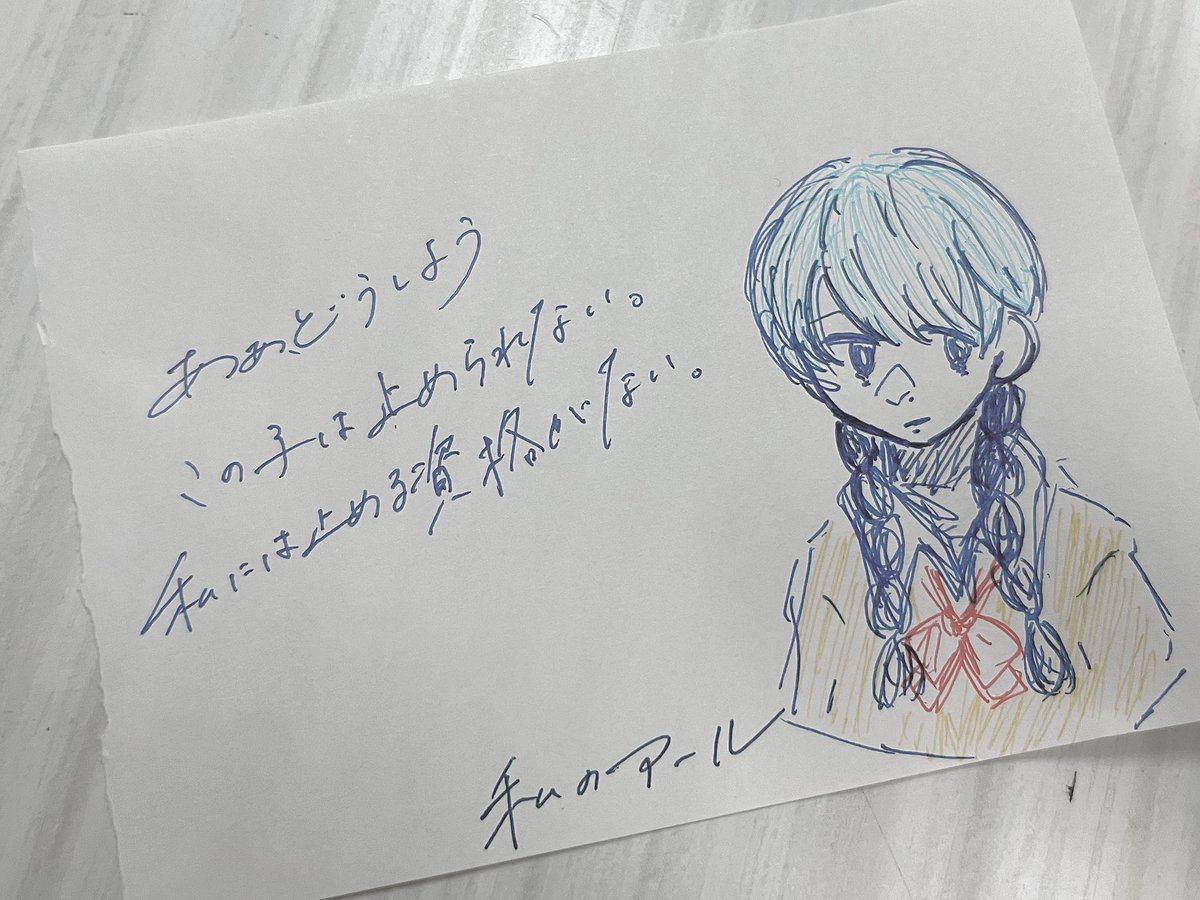 ああ、どうしよう
この子は止められない。
私には止める資格がない。
私のアール